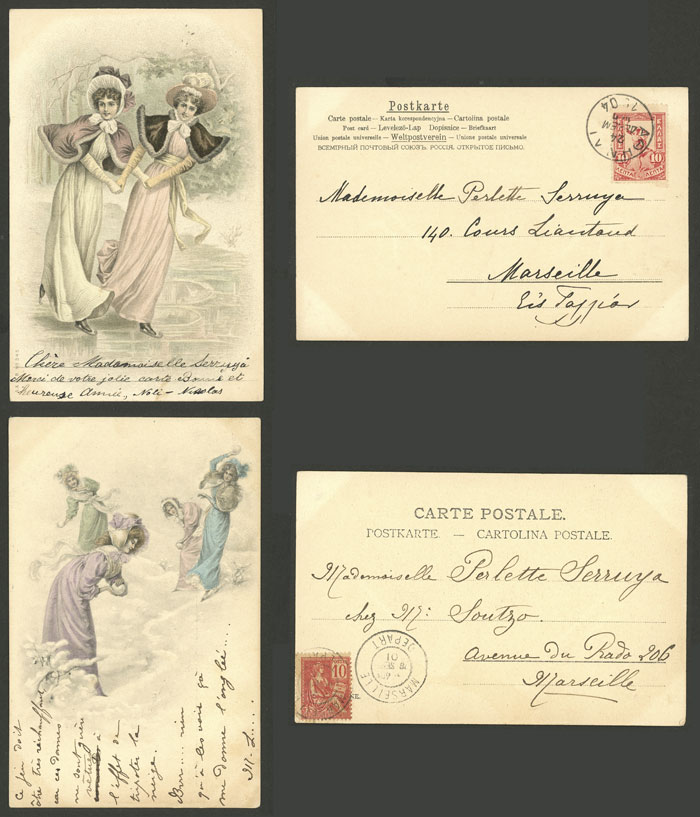 Chère Mademoiselle Serruya
Merci de votre jolie carte Bonne et
heureuse Année,
Postkarte
Carte postale — Karta korespondencyjna — Cartolina postale
Post card — Levelező-Lap Dopisnice — Briefkaart
Union postale universelle — Weltpostverein — Unione postale universale
ВСЕМІРНЫЙ ПОЧТОВЫЙ СОЮЗЪ. РОССІЯ. ОТКРЫТОЕ ПИСЬМО.
04
10
Mademoiselle Perlette Serruya
140. Cours Liautaud
Marseille
ce jeu doit
être très réchauffant
car ces dames
ne sont guère
vêtues
à
l'effet de
tripoter la
neige.
Brr.... rien
qu'à les voir ça
me donne l'onglée....
M. L....
CARTE POSTALE.
POSTKARTE. — CARTOLINA POSTALE.
Mademoiselle Perlette Serruya
chez Mr: Soutzo.
Avenue du Prado 206
Marseille
10
MARSEILLE
DEPART
01